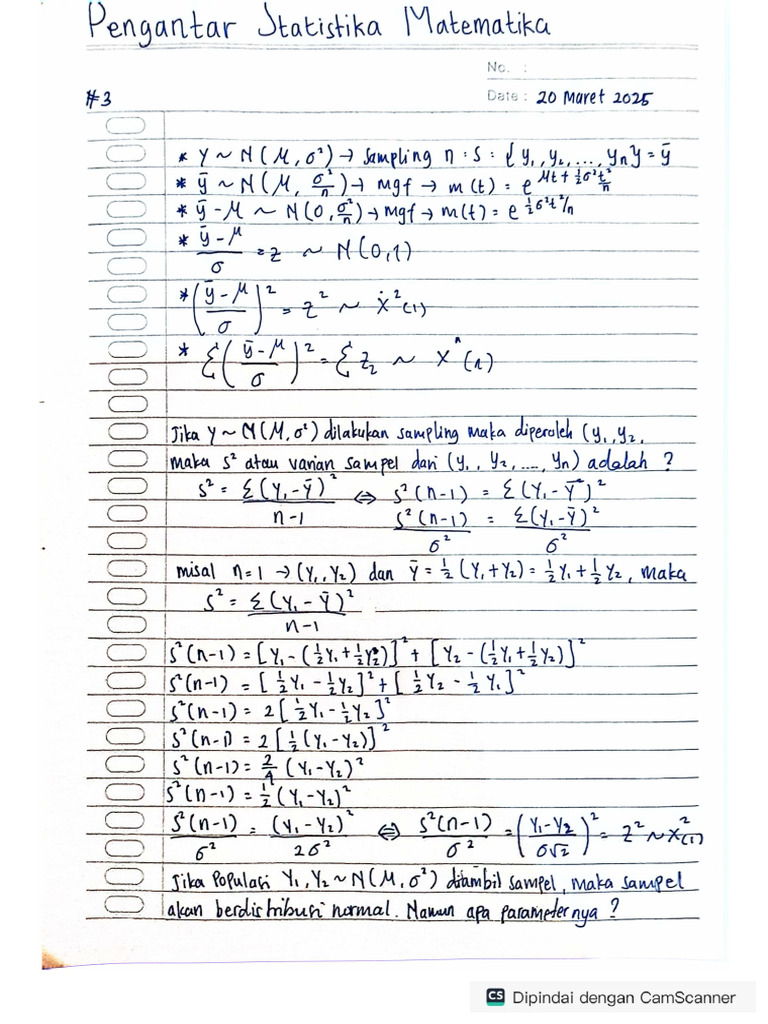 Pengantar Statistika Matematika
No. :
#3
Date : 20 Maret 2025
* Y ~ N(μ, σ²) → sampling n : S : {y₁, y₂, ..., yₙ} = ȳ
* ȳ ~ N(μ, σ²/n) → mgf → m(t) = e^(μt + ½σ²t²/n)
* ȳ - μ ~ N(0, σ²/n) → mgf → m(t) = e^(½σ²t²/n)
* (ȳ - μ)/σ = z ~ N(0,1)
* ((ȳ - μ)/σ)² = z² ~ X²(1)
* Σ((ȳ - μ)/σ)² = Σ z₂ ~ X^n(n)
Jika Y ~ N(μ, σ²) dilakukan sampling maka diperoleh (y₁, y₂,
maka s² atau varian sampel dari (y₁, y₂, ...., yₙ) adalah ?
s² = Σ(Y₁ - ȳ)²/(n-1) ⇔ s²(n-1) = Σ(Y₁ - Ȳ)²
s²(n-1)/σ² = Σ(Y₁ - ȳ)²/σ²
misal n=1 → (Y₁, Y₂) dan ȳ = ½(Y₁+Y₂) = ½Y₁ + ½Y₂, maka
s² = Σ(Y₁ - ȳ)²/(n-1)
s²(n-1) = [Y₁ - (½Y₁ + ½Y₂)]² + [Y₂ - (½Y₁ + ½Y₂)]²
s²(n-1) = [½Y₁ - ½Y₂]² + [½Y₂ - ½Y₁]²
s²(n-1) = 2[½Y₁ - ½Y₂]²
s²(n-1) = 2[½(Y₁ - Y₂)]²
s²(n-1) = 2/4 (Y₁ - Y₂)²
s²(n-1) = ½(Y₁ - Y₂)²
s²(n-1)/σ² = (Y₁ - Y₂)²/2σ² ⇔ s²(n-1)/σ² = ((Y₁ - Y₂)/σ√2)² = Z² ~ X²(1)
Jika Populasi Y₁, Y₂ ~ N(μ, σ²) diambil sampel, maka sampel
akan berdistribusi normal. Namun apa parameternya ?
CS Dipindai dengan CamScanner